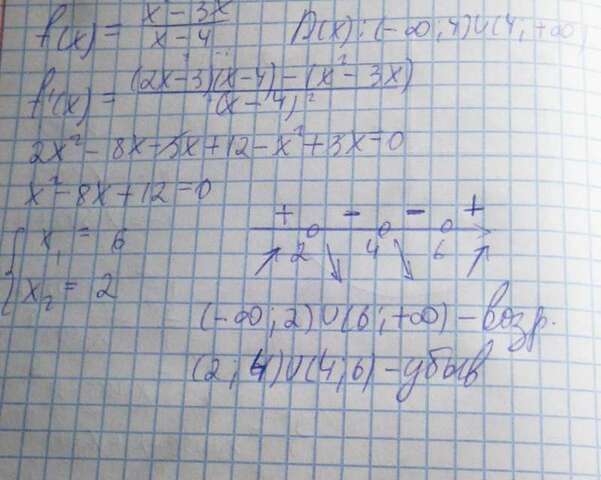 f(x) = (x² - 3x)/(x - 4) D(x): (-∞; 4)∪(4; +∞)
f'(x) = ((2x-3)(x-4) - (x² - 3x))/(x-4)²
2x² - 8x - 3x + 12 - x² + 3x = 0
x² - 8x + 12 = 0
{ x₁ = 6
x₂ = 2
+ - - +
2 4 6
(-∞; 2)∪(6; +∞) - возр.
(2; 4)∪(4; 6) - убыв